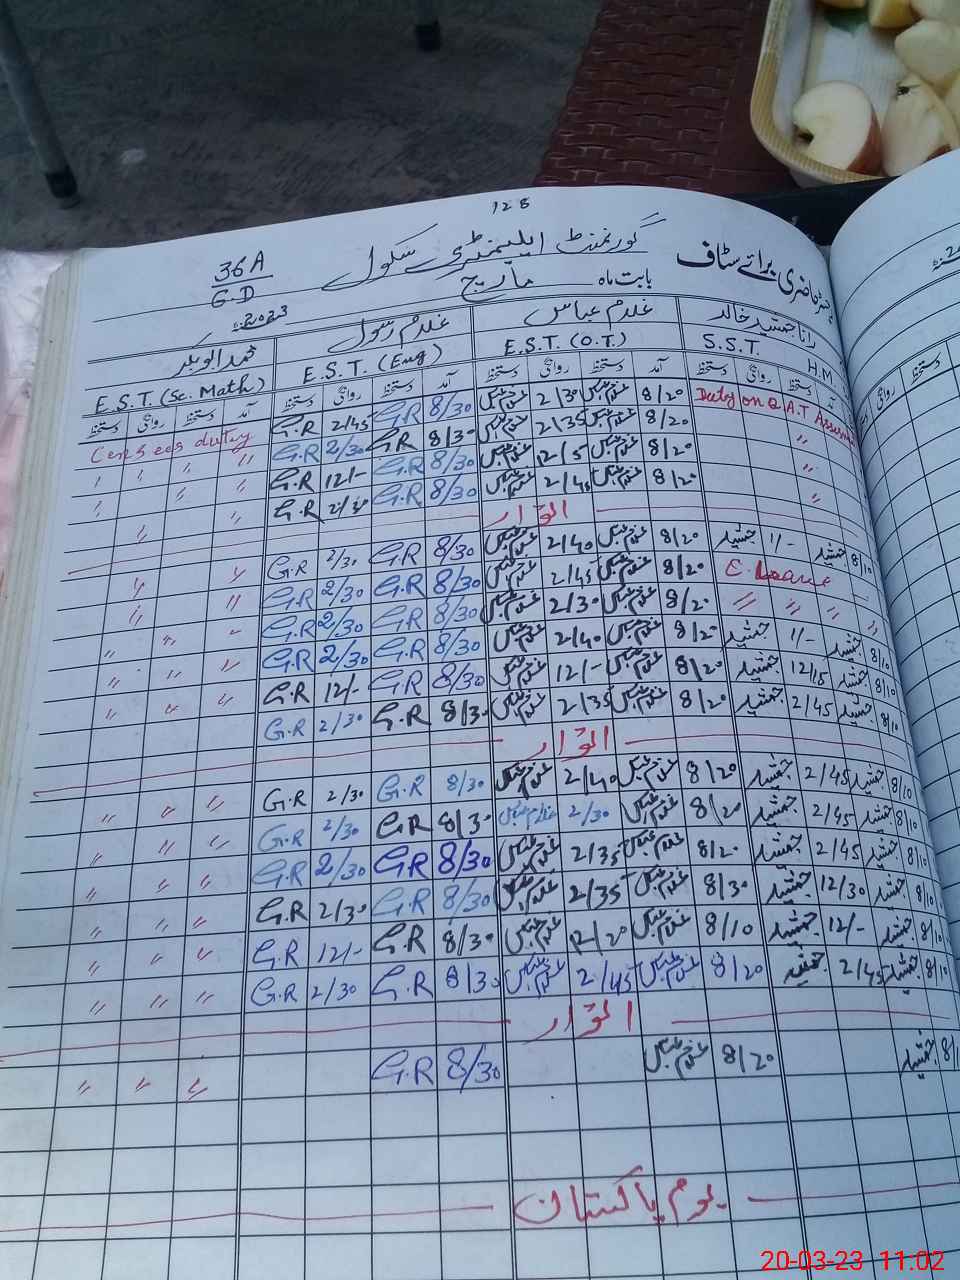 128
گورنمنٹ ایلیمنٹری سکول 36A
رجسٹر حاضری برائے سٹاف بابت ماہ مارچ G.D
2023ء
رانا جمشید خالد غلام عباس غلام رسول محمد ابوبکر
S.S.T. H.M. E.S.T. (O.T.) E.S.T. (Eng) E.S.T. (Sc. Math)
آمد دستخط روانگی دستخط آمد دستخط روانگی دستخط آمد دستخط روانگی دستخط
Duty on Q.A.T 8/20 غلام عباس 2/30 غلام عباس 8/30 G.R 2/45 G.R Censees duty
" 8/20 غلام عباس 2/35 غلام عباس 8/30 G.R 2/30 G.R " " " "
" 8/20 غلام عباس 12/5 غلام عباس 8/30 G.R 12/- G.R " " " "
" 8/20 غلام عباس 2/45 غلام عباس 8/30 G.R G.R " "
اتوار
8/10 جمشید 11/- جمشید 8/20 غلام عباس 2/40 غلام عباس 8/30 G.R 2/30 G.R " "
C. Leave 8/20 غلام عباس 2/45 غلام عباس 8/30 G.R 2/30 G.R " "
" " " " 8/20 غلام عباس 2/30 غلام عباس 8/30 G.R 2/30 G.R " " "
8/10 جمشید 11/- جمشید 8/20 غلام عباس 2/40 غلام عباس 8/30 G.R 2/30 G.R " " "
8/10 جمشید 12/15 جمشید 8/20 غلام عباس 12/- غلام عباس 8/30 G.R 12/- G.R " " "
8/10 جمشید 2/45 جمشید 8/20 غلام عباس 2/35 غلام عباس 8/30 G.R 2/30 G.R
اتوار
8/10 جمشید 2/45 جمشید 8/20 غلام عباس 2/40 غلام عباس 8/30 G.R 2/30 G.R " " "
8/10 جمشید 2/45 جمشید 8/20 غلام عباس 2/30 غلام عباس 8/30 G.R 2/30 G.R " " "
8/10 جمشید 2/45 جمشید 8/20 غلام عباس 2/35 غلام عباس 8/30 G.R 2/30 G.R " " "
8/10 جمشید 12/30 جمشید 8/30 غلام عباس 2/35 غلام عباس 8/30 G.R 2/30 G.R " " "
8/10 جمشید 12/- جمشید 8/10 غلام عباس 12/20 غلام عباس 8/30 G.R 12/- G.R " " "
8/10 جمشید 2/45 جمشید 8/20 غلام عباس 2/45 غلام عباس 8/30 G.R 2/30 G.R " " "
اتوار
جمشید 8/20 غلام عباس 8/30 G.R " " "
یوم پاکستان
20-03-23 11:02